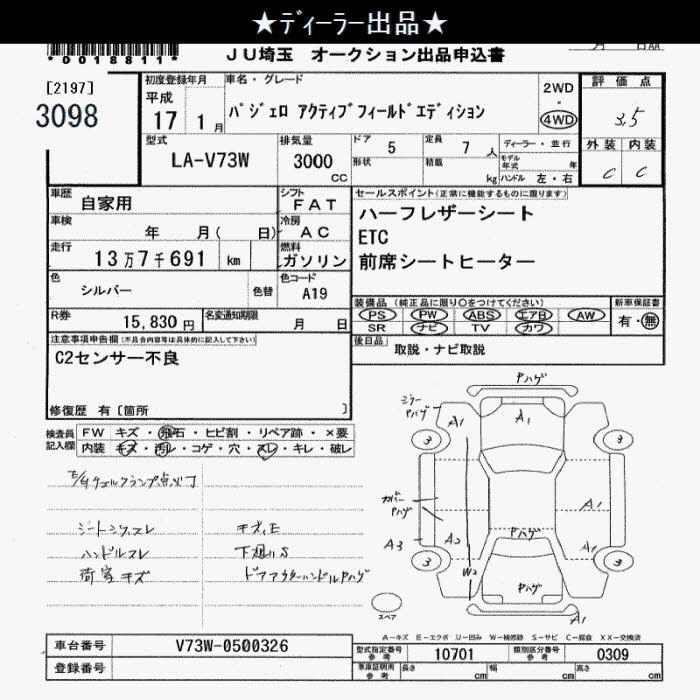 ★ディーラー出品★
*0018811*
JU埼玉 オークション出品申込書
[2197]
3098
初度登録年月
平成
17 1月
車名・グレード
パジェロ アクティブフィールドエディション
2WD
・
4WD
評価点
3.5
外装 内装
C C
型式
LA-V73W
排気量
3000
CC
ドア 5
形状
定員 7 人
積載 kg
ディーラー・並行
モデル年式 年
ハンドル 左・右
車歴
自家用
シフト
FAT
車検
年 月( 日)
冷房
AC
走行
13万7千691 km
燃料
ガソリン
色
シルバー
色替
色コード
A19
R券
15,830円
名変通知期限
月 日
セールスポイント(正常に機能するものに限ります)
ハーフレザーシート
ETC
前席シートヒーター
装備品 (純正品に限り○をつけてください)
PS PW ABS エアB AW
SR ナビ TV カワ
新車保証書
有・無
後日品
取説・ナビ取説
注意事項申告欄(不具合内容等は具体的に記入して下さい)
C2センサー不良
修復歴 有〔箇所 〕
検査員
記入欄
FW キズ・飛石・ヒビ割・リペア跡・×要
内装 キズ・汚レ・コゲ・穴・スレ・キレ・破レ
シートシワ、スレ
ハンドルスレ
荷室キズ
キズ、E
下廻りS
ドアアウターハンドルPハゲ
Pハゲ
ミラー
Pハゲ
A1
A1
3
3
カバー
Pハゲ
A1
Pハゲ
A3
A2
A1
3
3
W2
Pハゲ
スペア
A1
A-キズ E-エクボ U-凹み W-補修跡 S-サビ C-腐食 XX-交換済
車台番号
V73W-0500326
登録番号
型式指定番号
参考
10701
類別区分番号
参考
0309
車庫証明用
参考
長さ cm
幅 cm
高さ cm